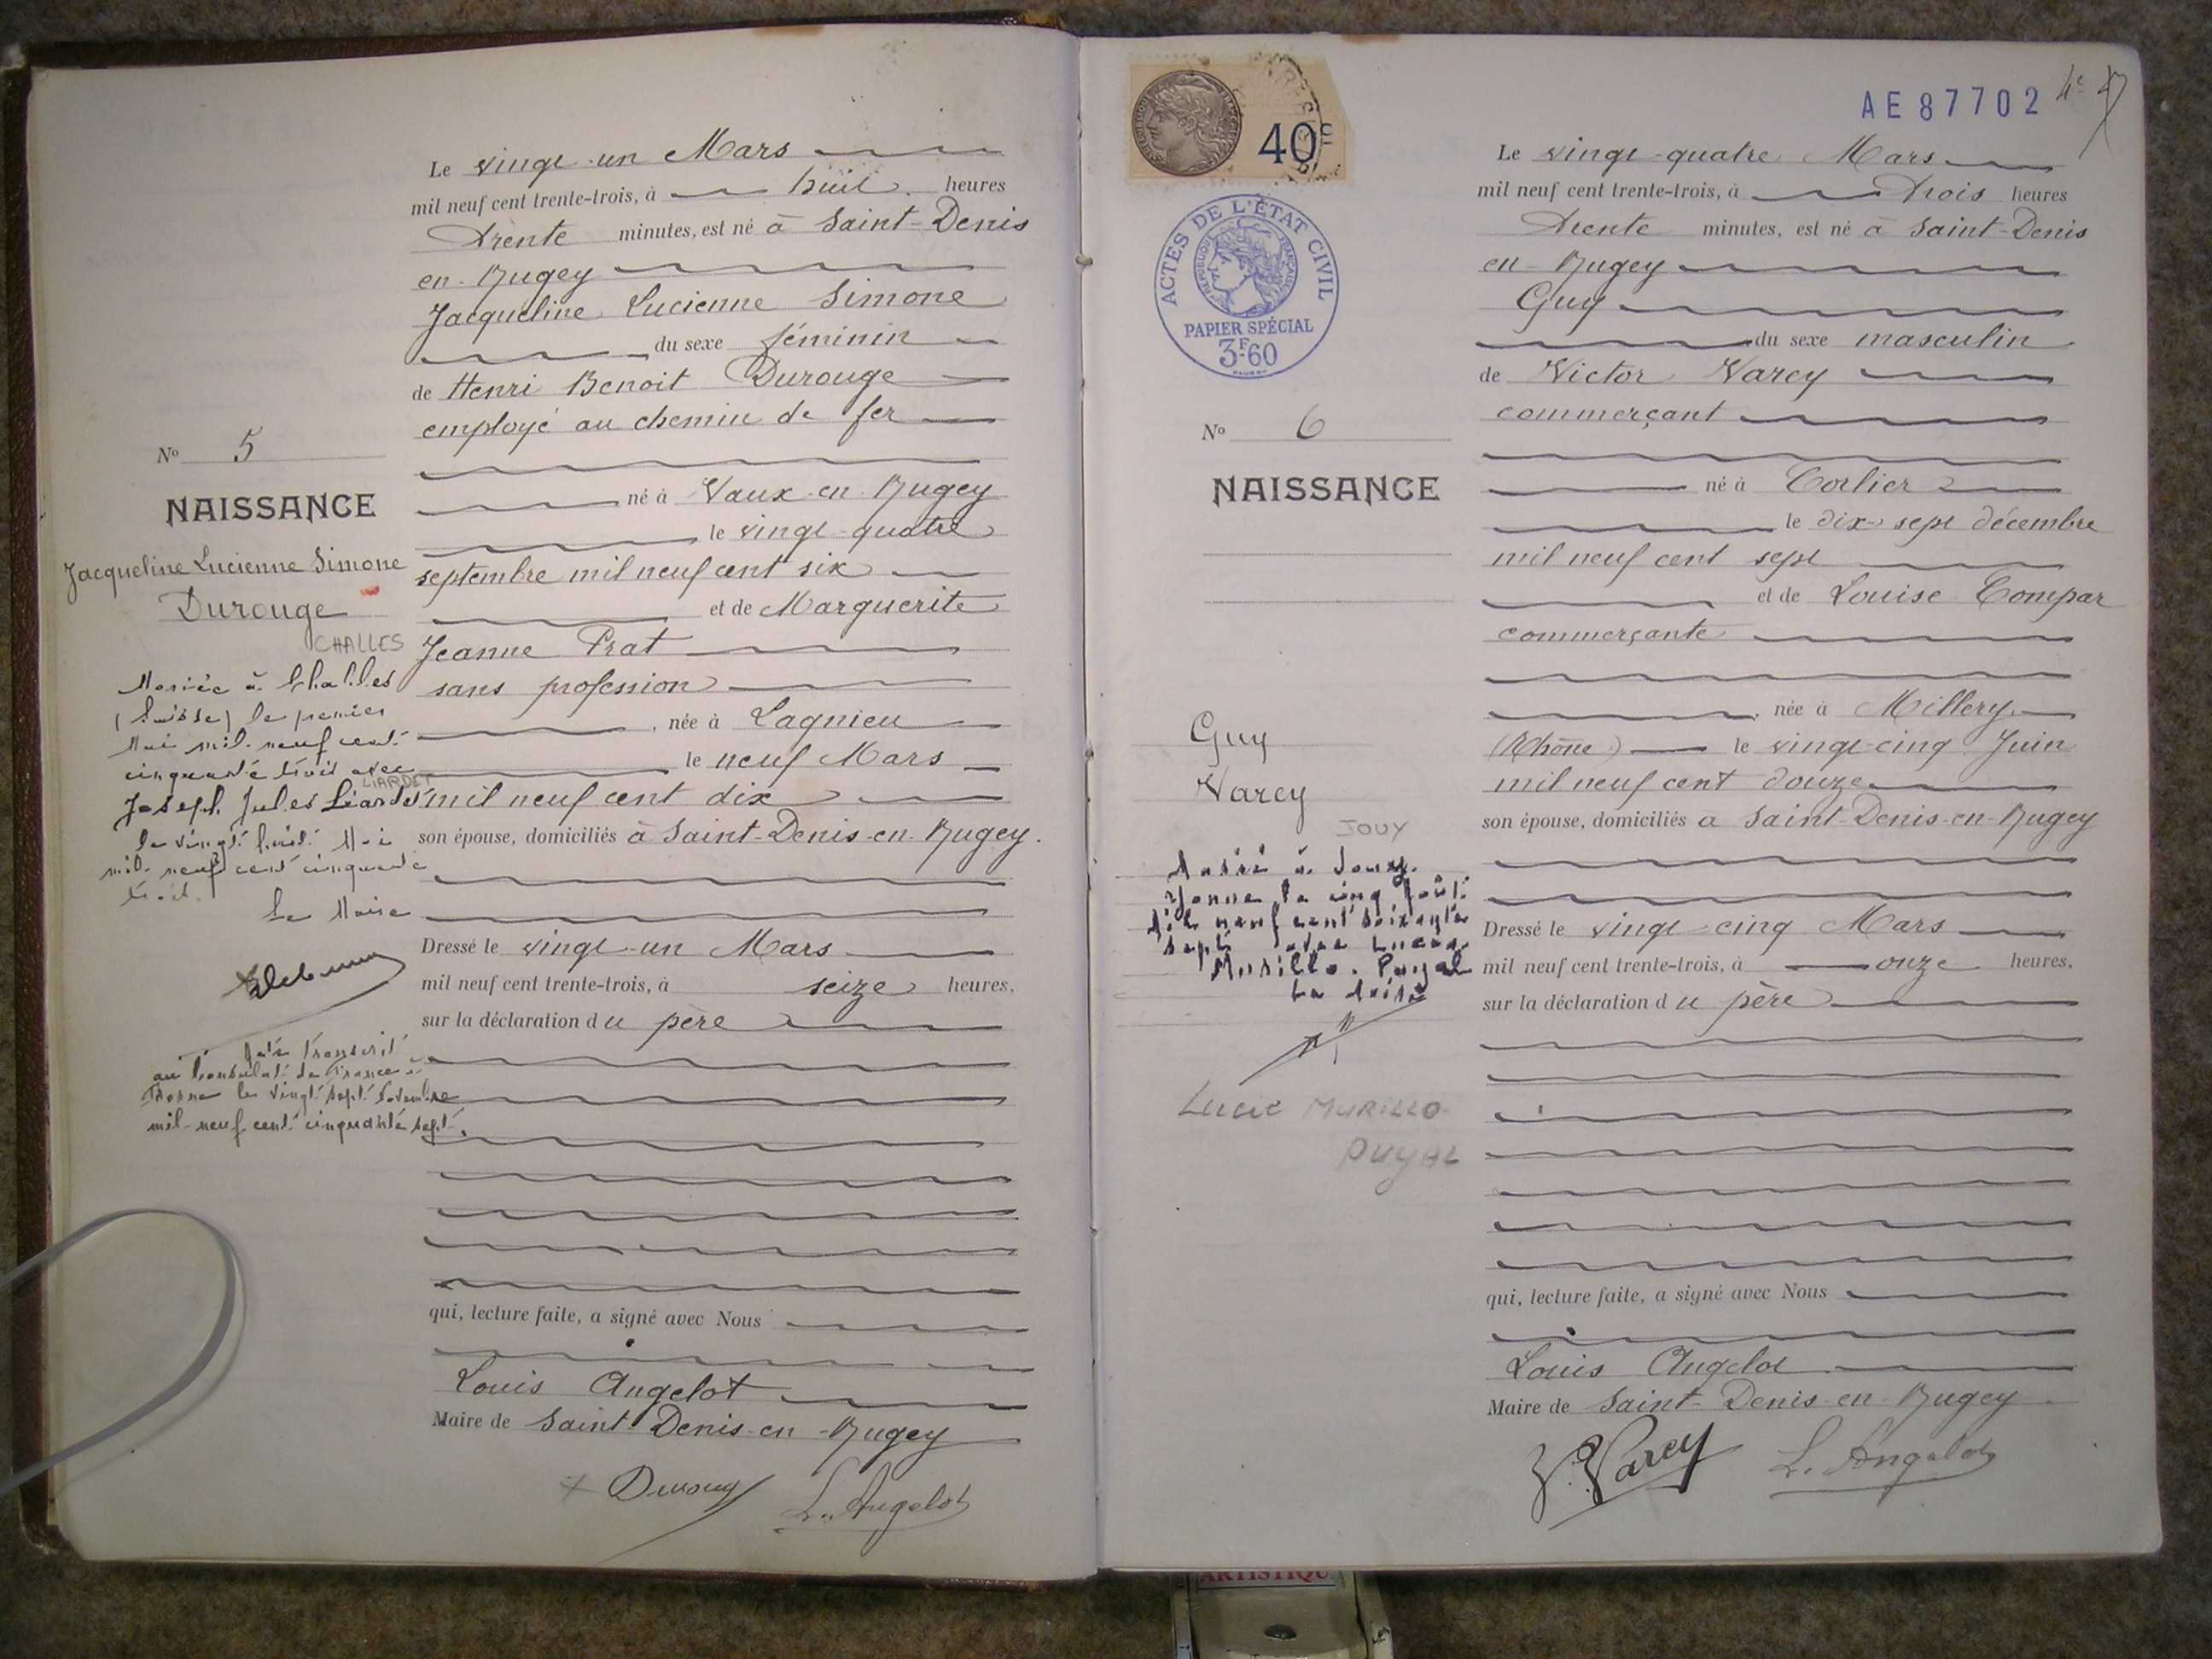 Le vingt-un Mars
mil neuf cent trente-trois, à huit heures
trente minutes, est né à Saint-Denis
en-Bugey
Jacqueline Lucienne Simone
du sexe féminin
de Henri Benoit Durouge
employé au chemin de fer
né à Vaux-en-Bugey
le vingt-quatre
septembre mil neuf cent six
et de Marguerite
Jeanne Prat
sans profession
, née à Lagnieu
le neuf Mars
mil neuf cent dix
son épouse, domiciliés à Saint-Denis-en-Bugey.
Dressé le vingt-un Mars
mil neuf cent trente-trois, à seize heures,
sur la déclaration du père
qui, lecture faite, a signé avec Nous
Louis Angelot
Maire de Saint-Denis-en-Bugey
Durouge L. Angelot
No 5
NAISSANCE
Jacqueline Lucienne Simone
Durouge
CHALLES
Mariée à Challes
(Suisse) le premier
Mai mil-neuf cent
cinquante trois avec
LIARDET
Joseph Jules Liardet
le vingt huit Mai
mil-neuf cent cinquante
trois.
Le Maire
Acte Transcrit
au Consulat de France
le vingt sept
mil-neuf cent cinquante sept.
40c
AE87702
ACTES DE L'ÉTAT CIVIL
RÉPUBLIQUE FRANÇAISE
PAPIER SPÉCIAL
3F60
No 6
NAISSANCE
Guy
Varey
JOUY
Marié à Jouy.
Yonne le cinq Août
Mil neuf cent soixante
sept avec Lucie
Murillo. Puyal
Le Maire
Lucie MURILLO-
PUYAL
Le vingt-quatre Mars
mil neuf cent trente-trois, à trois heures
trente minutes, est né à Saint-Denis
en-Bugey
Guy
du sexe masculin
de Victor Varey
commerçant
né à Corlier
le dix-sept décembre
mil neuf cent sept
et de Louise Compar
commerçante
, née à Millery
(Rhône) le vingt-cinq Juin
mil neuf cent douze
son épouse, domiciliés à Saint-Denis-en-Bugey
Dressé le vingt-cinq Mars
mil neuf cent trente-trois, à onze heures,
sur la déclaration du père
qui, lecture faite, a signé avec Nous
Louis Angelot
Maire de Saint-Denis-en-Bugey
V. Varey L. Angelot
ARTISTIQU